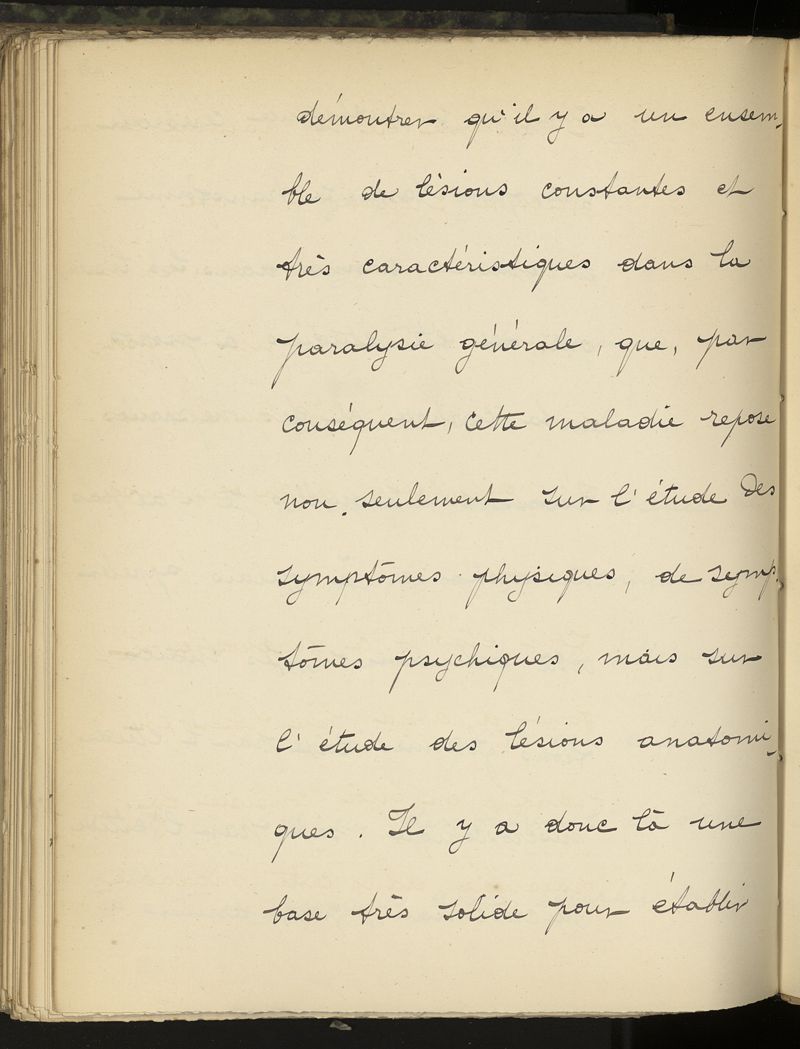 démontrer qu'il y a un ensem-
ble de lésions constantes et
très caractéristiques dans la
paralysie générale, que, par
conséquent, cette maladie repose
non seulement sur l'étude des
symptômes physiques, de symp-
tômes psychiques, mais sur
l'étude des lésions anatomi-
ques. Il y a donc là une
base très solide pour établir